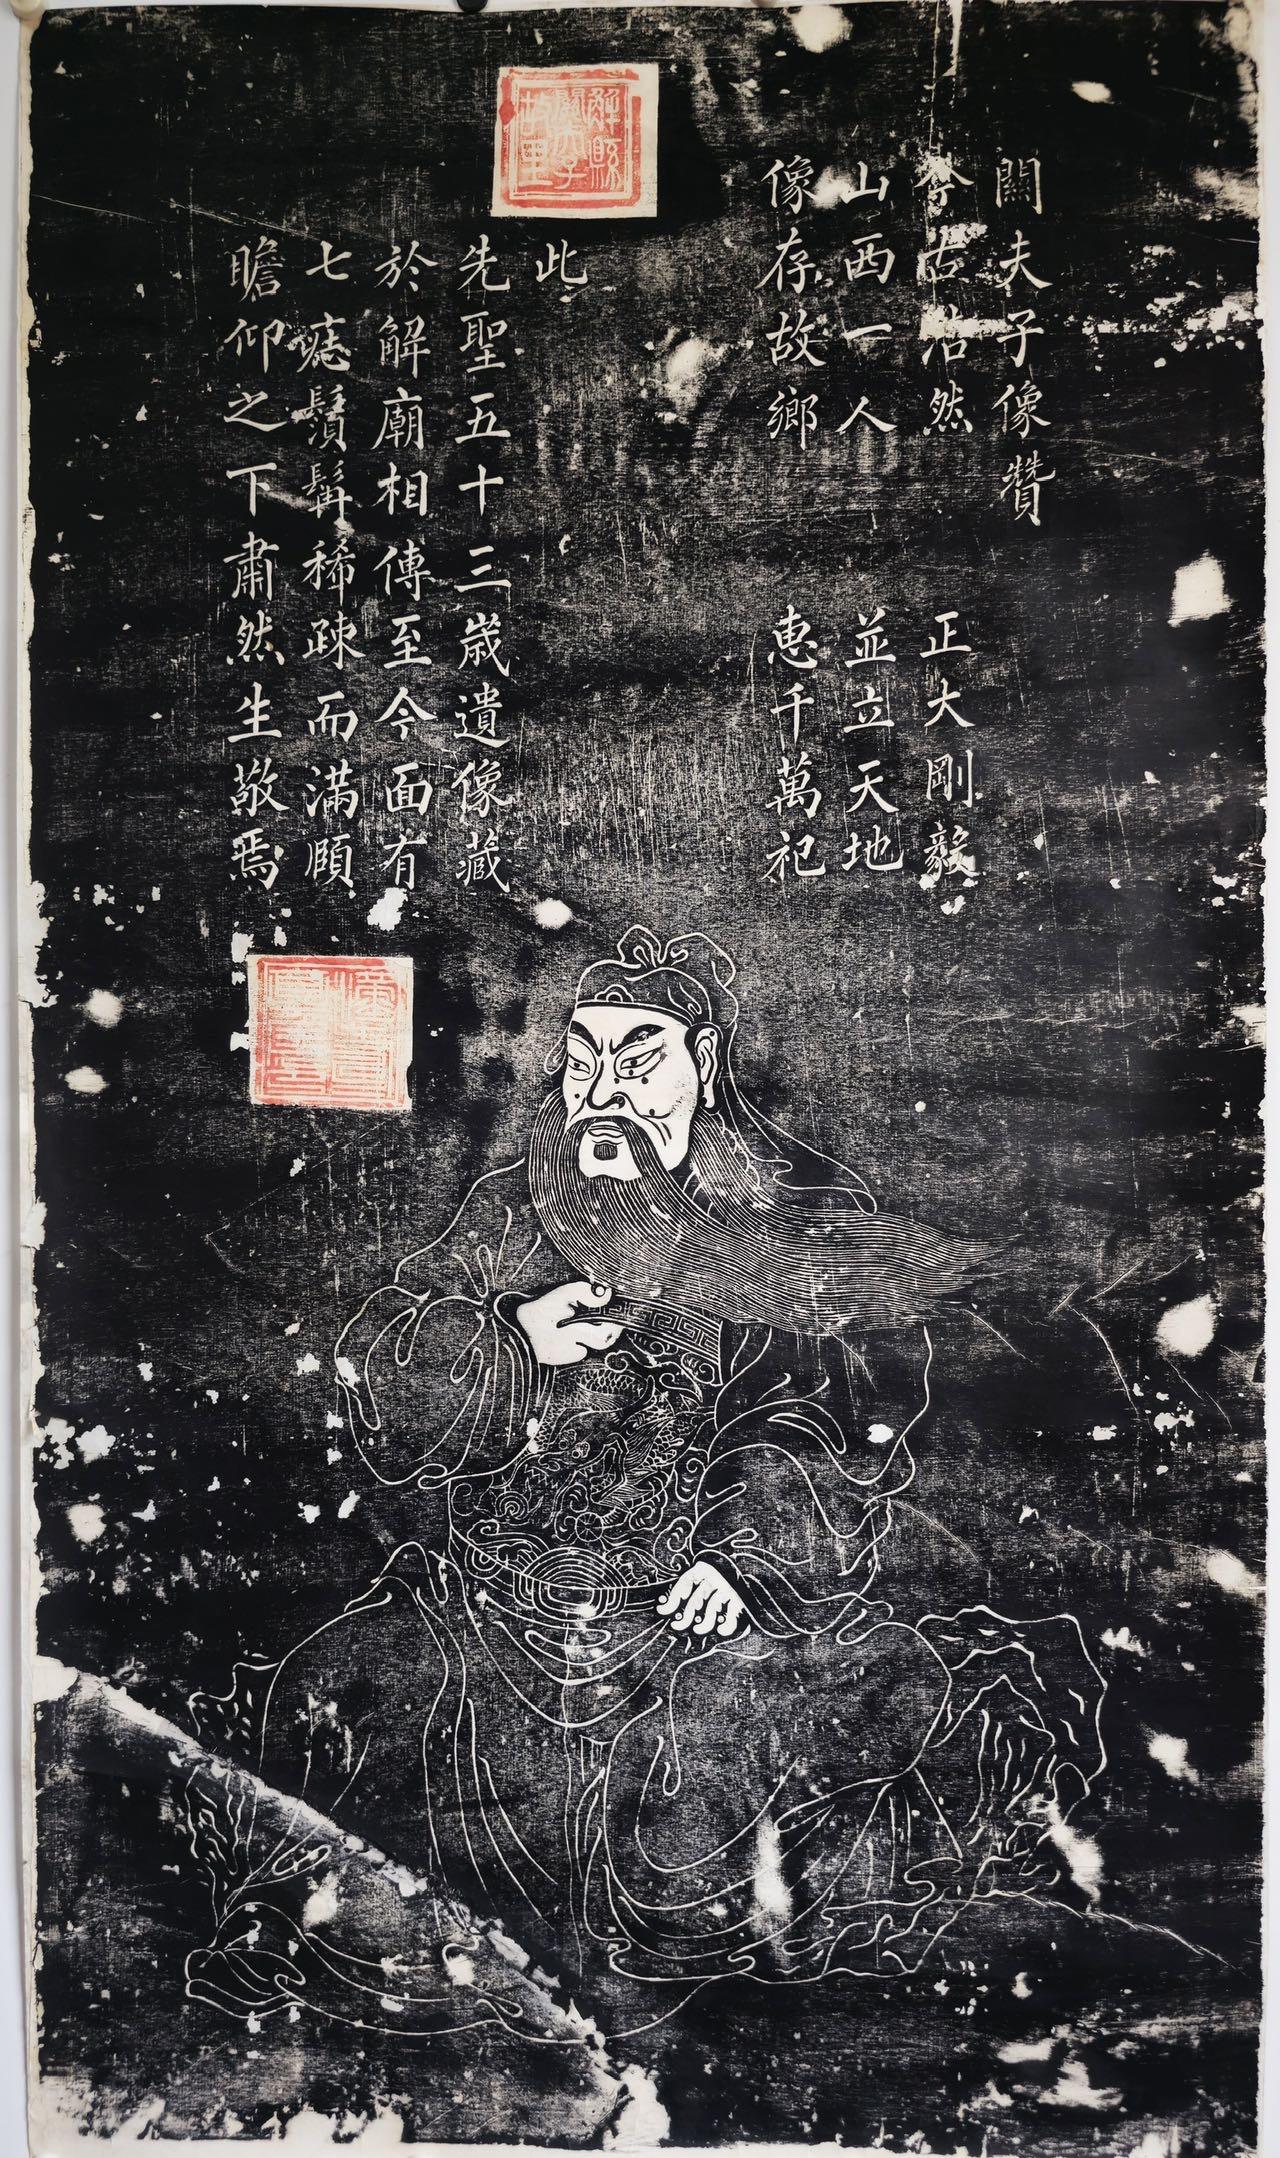 關夫子像贊
今古浩然 正大剛毅
山西一人 並立天地
像存故鄉 惠千萬祀
解縣關夫子故里
此
先聖五十三歲遺像藏
於解廟相傳至今面有
七痣鬚髯稀疎而滿頤
瞻仰之下肅然生敬焉